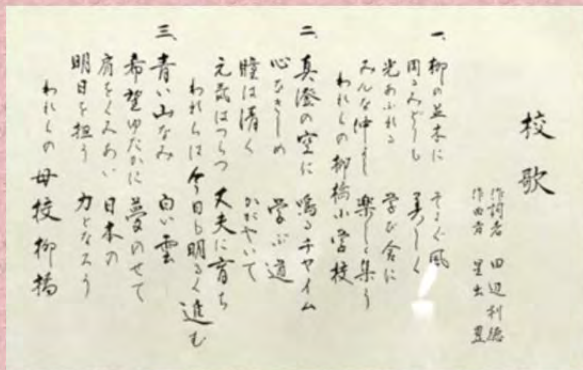 校歌
作詞者 田辺利徳
作曲者 星出豊
一、柳の並木に そよぐ風
美しく
光あふれる 学び舎に
みんな仲よし 楽しく集う
われらの柳橋小学校
二、真澄の空に 鳴るチャイム
学ぶ道
瞳は清く かがやいて
元気はつらつ 丈夫に育ち
われらは今日も明るく進む
三、青い山なみ 白い雲
希望ゆたかに 夢のせて
肩をくみあい 日本の
明日を担う 力となろう
われらの母校柳橋